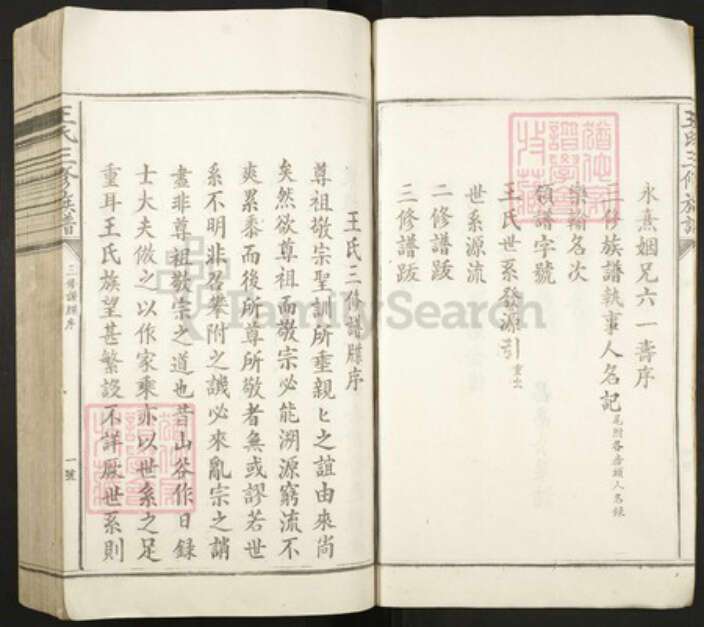 王氏三修族譜
永熹姻兄六一壽序
三修族譜執事人名記 尾附各房頭人名錄
樂輸名次
領譜字號
王氏世系發源引 重出
世系源流
二修譜跋
三修譜跋
王氏三修譜牒序
尊祖敬宗聖訓所垂親ヒ之誼由來尚
矣然欲尊祖而敬宗必能溯源窮流不
爽累黍而後所尊所敬者無或謬若世
系不明非召攀附之譏必來亂宗之誚
盡非尊祖敬宗之道也昔山谷作日錄
士大夫倣之以作家乘亦以世系之足
重耳王氏族望甚繁設不詳厥世系則
王氏三修族譜
三修譜牒序
一號
FamilySearch